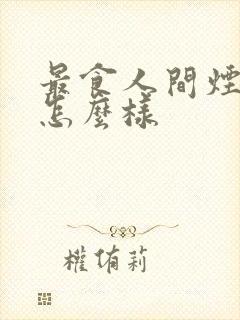 最食人間煙
怎麼樣
權侑莉